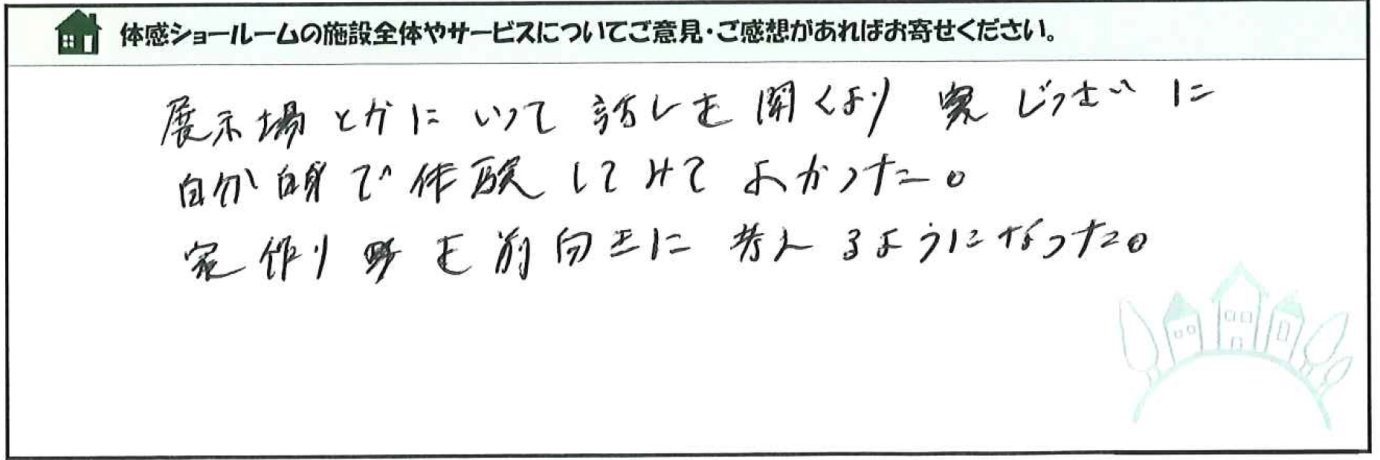 体感ショールームの施設全体やサービスについてご意見・ご感想があればお寄せください。
展示場とかにいって話しを聞くより じっさいに
自分自身で体験してみてよかった。
家作りを前向きに考えるようになった。